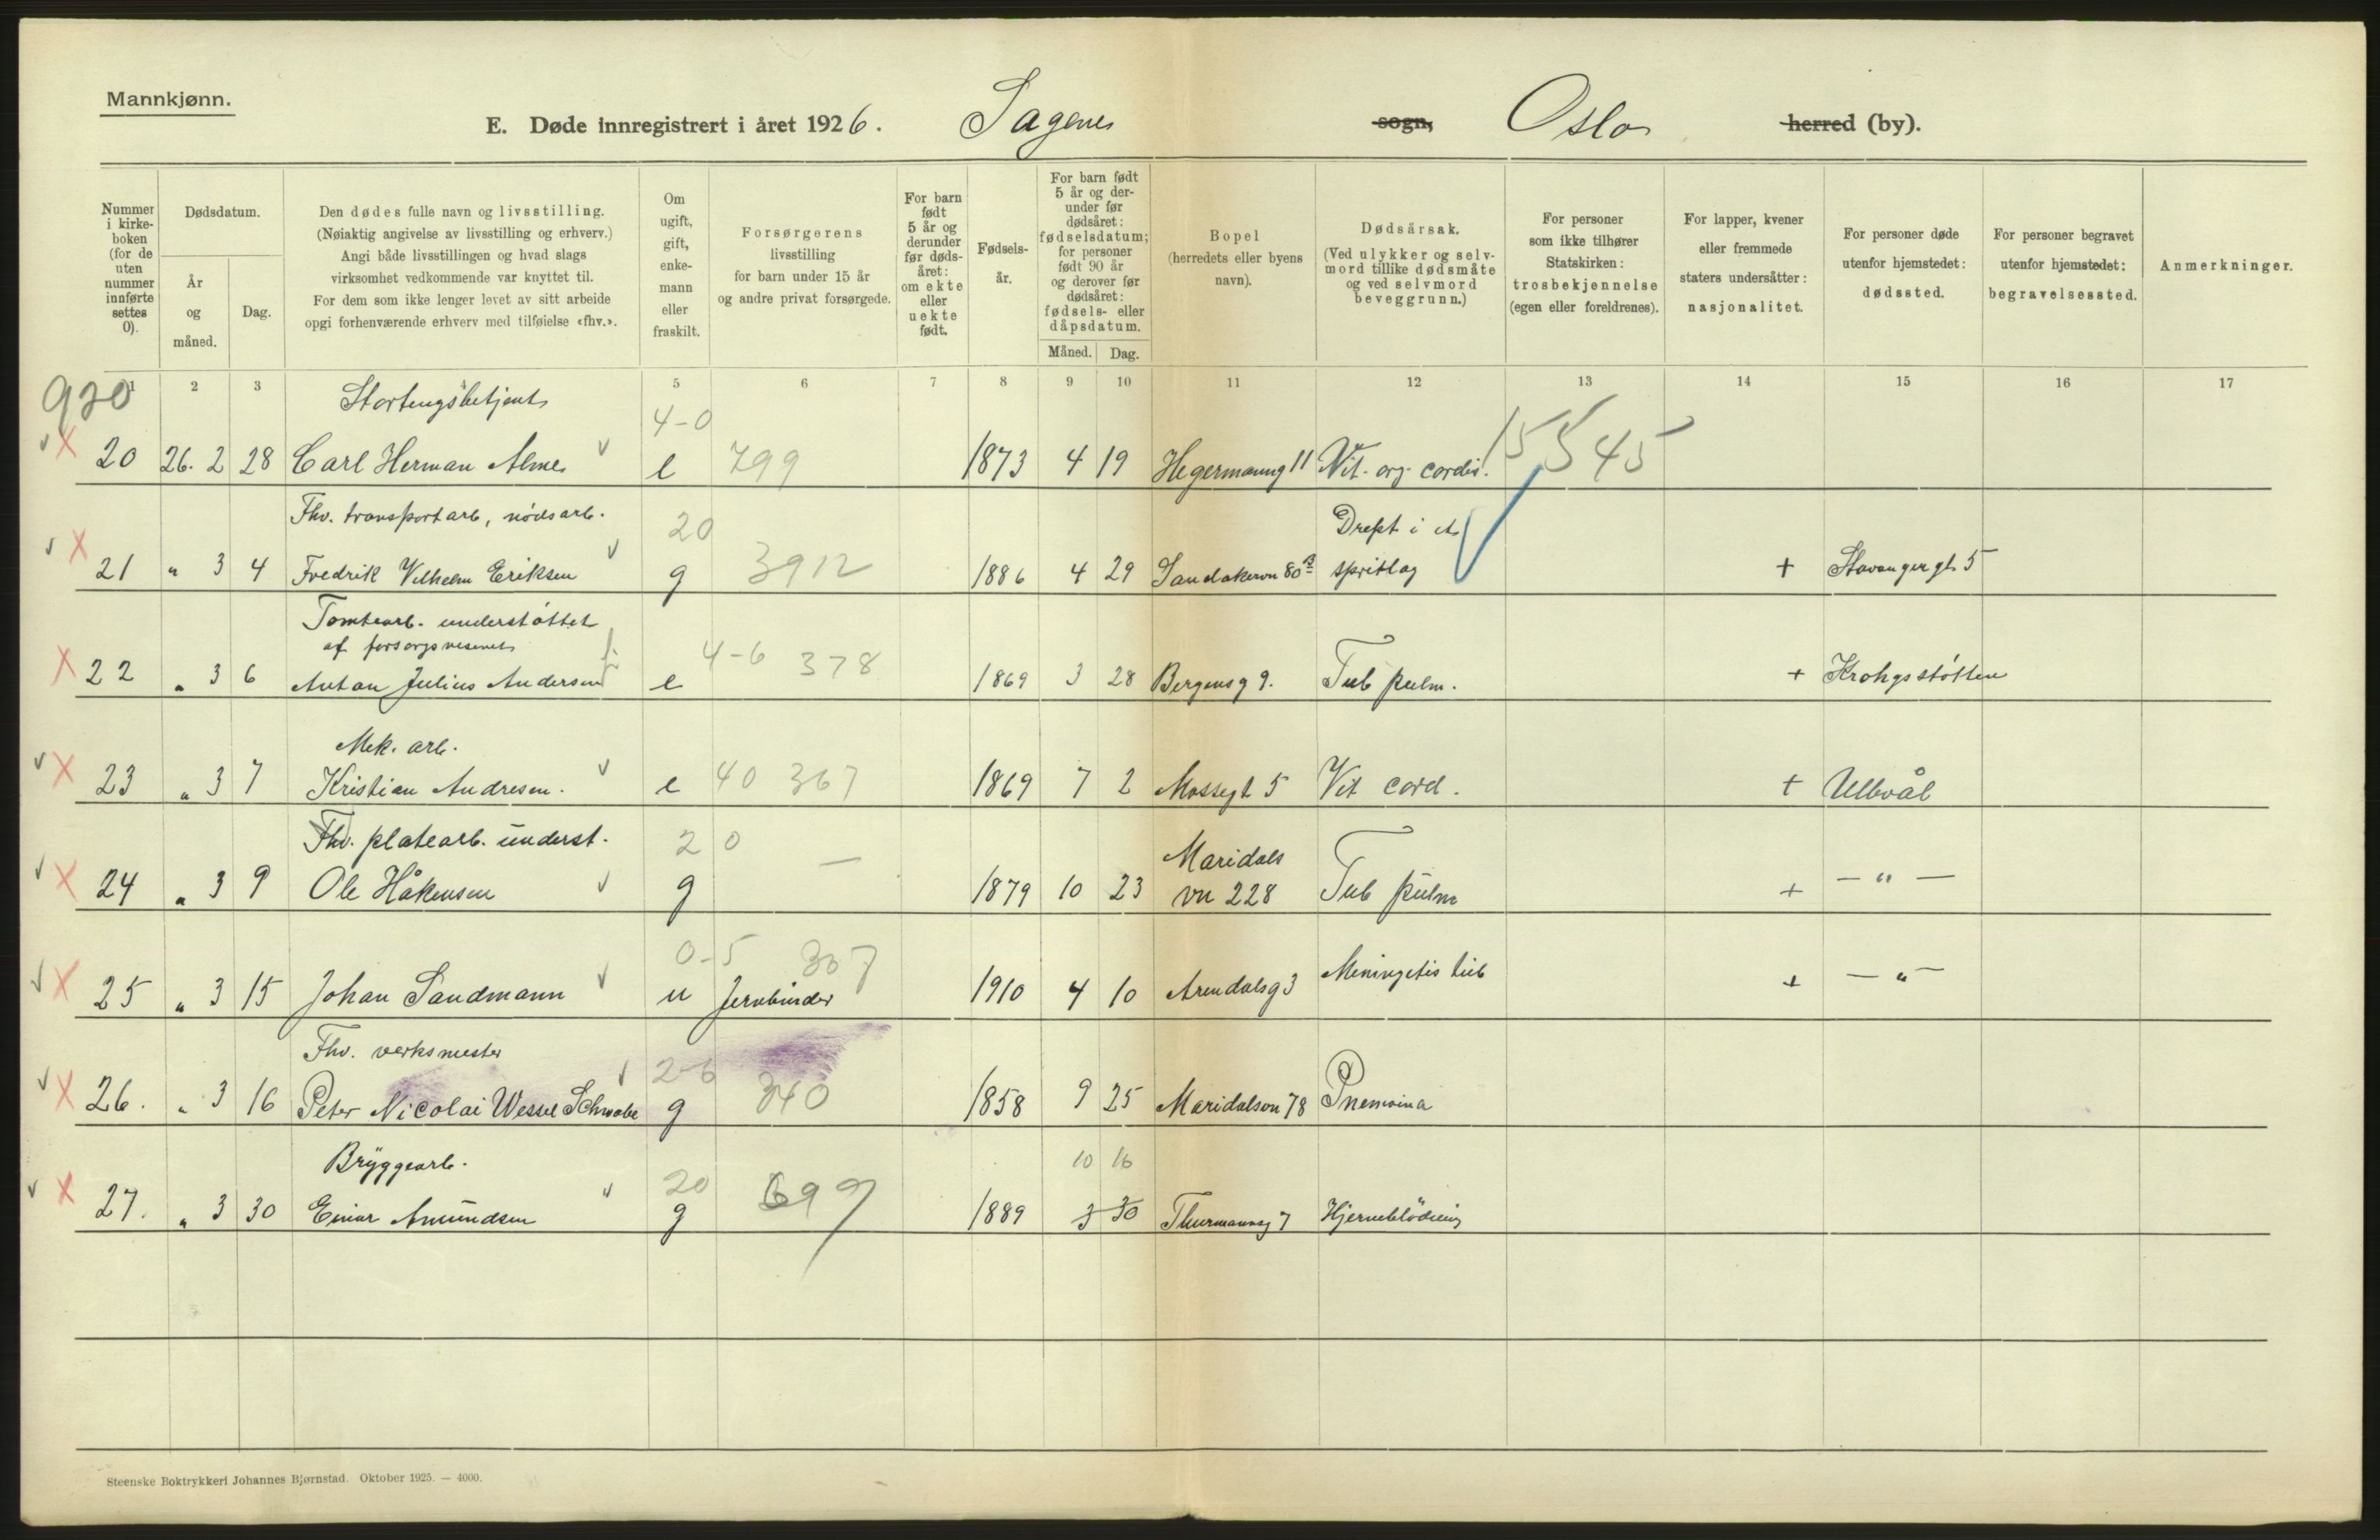 Mannkjønn.
E. Døde innregistrert i året 1926. Sagenes sogn, Oslo herred (by).
Nummer i kirke-boken (for de uten nummer innførte settes 0).
Dødsdatum.
År og måned.
Dag.
Den dødes fulle navn og livsstilling.
(Nøiaktig angivelse av livsstilling og erhverv.)
Angi både livsstillingen og hvad slags
virksomhet vedkommende var knyttet til.
For dem som ikke lenger levet av sitt arbeide
opgi forhenværende erhverv med tilføielse «fhv.».
Om ugift, gift, enke-mann eller fraskilt.
Forsørgerens livsstilling for barn under 15 år og andre privat forsørgede.
For barn født 5 år og derunder før døds-året: om ekte eller uekte født.
Fødsels-år.
For barn født 5 år og der-under før dødsåret: fødselsdatum; for personer født 90 år og derover før dødsåret: fødsels- eller dåpsdatum.
Måned. Dag.
Bopel (herredets eller byens navn).
Dødsårsak. (Ved ulykker og selv-mord tillike dødsmåte og ved selvmord beveggrunn.)
For personer som ikke tilhører Statskirken: trosbekjennelse (egen eller foreldrenes).
For lapper, kvener eller fremmede staters undersåtter: nasjonalitet.
For personer døde utenfor hjemstedet: dødssted.
For personer begravet utenfor hjemstedet: begravelsessted.
Anmerkninger.
1 2 3 4 5 6 7 8 9 10 11 12 13 14 15 16 17
920 Stortingsbetjent 4-0 15545
20 26. 2 28 Carl Herman Almes e 799 1873 4 19 Hegermanng 11 Vit. org. cordis.
Fhv. transportarb, nødsarb. 20 Drept i et
21 " 3 4 Fredrik Vilhelm Eriksen g 3912 1886 4 29 Sandakervn 80 B spritlag + Stavangergt 5
Tomtearb. understøttet
af forsorgsvesenet 4-6 378
22 " 3 6 Anton Julius Andersen e 1869 3 28 Bergensg 9. Tub pulm. + Krohgsstøtten
Mek. arb.
23 " 3 7 Kristian Andresen. e 40 367 1869 7 2 Mossegt 5 Vit cord. + Ullevål
Fhv. platearb. underst. 20 — Maridals
24 " 3 9 Ole Håkensen g 1879 10 23 vn 228 Tub pulm + — " —
0-5 307
25 " 3 15 Johan Sandmann u Jernbinder 1910 4 10 Arendalsg 3 Meningitis tub + — " —
Fhv. verksmester 2-6
26. " 3 16 Peter Nicolai Wessel Schwabe g 340 1858 9 25 Maridalsvn 78 Pnemoina
Bryggearb. 20 10 16
27. " 3 30 Einar Amundsen g 699 1889 3 30 Thurmannsg 7 Hjerneblødning
Steenske Boktrykkeri Johannes Bjørnstad. Oktober 1925. — 4000.